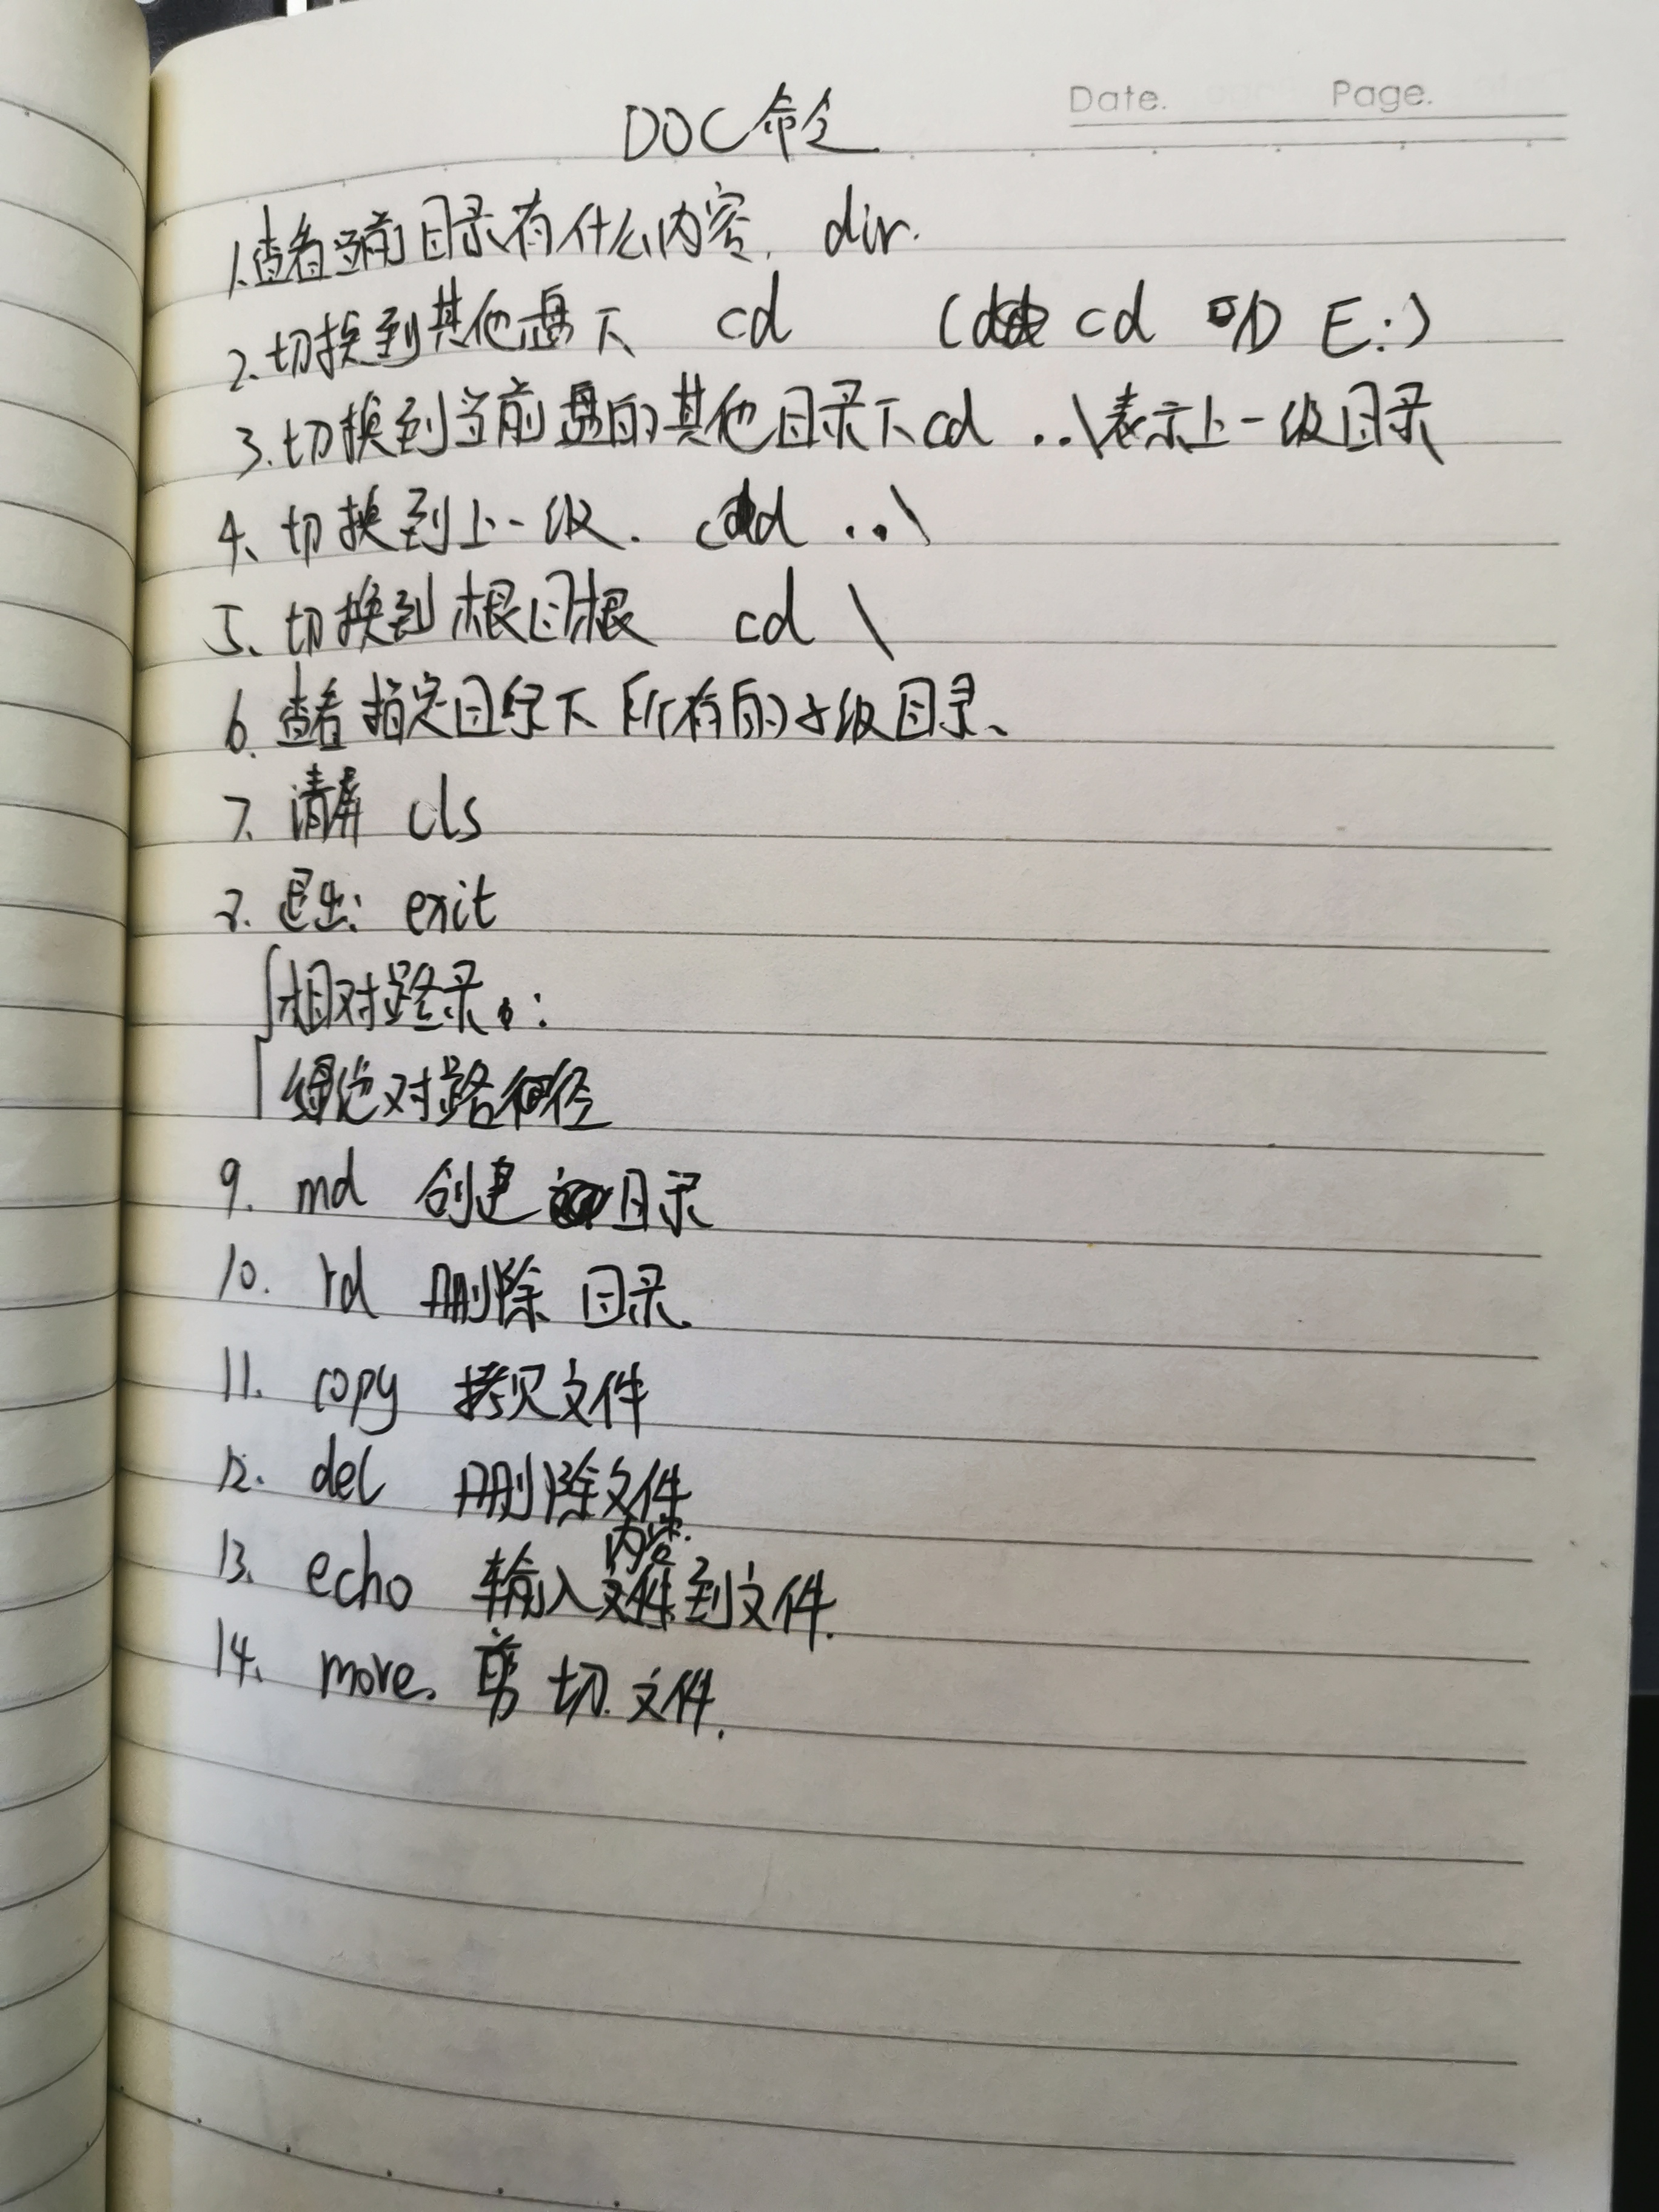 Date. Page.
DOC命令
1.查看当前目录有什么内容. dir.
2.切换到其他盘下 cd (cd /D E:)
3.切换到当前盘的其他目录下cd ..\表示上一级目录
4、切换到上一级. cd ..\
5、切换到根目根 cd \
6.查看指定目录下所有的子级目录、
7.清屏 cls
8.退出: exit
相对路录:
绝对路径
9. md 创建目录
10. rd 删除 目录
11. copy 拷贝文件
12. del 删除文件
13. echo 输入内容到文件.
14. move. 剪切.文件.